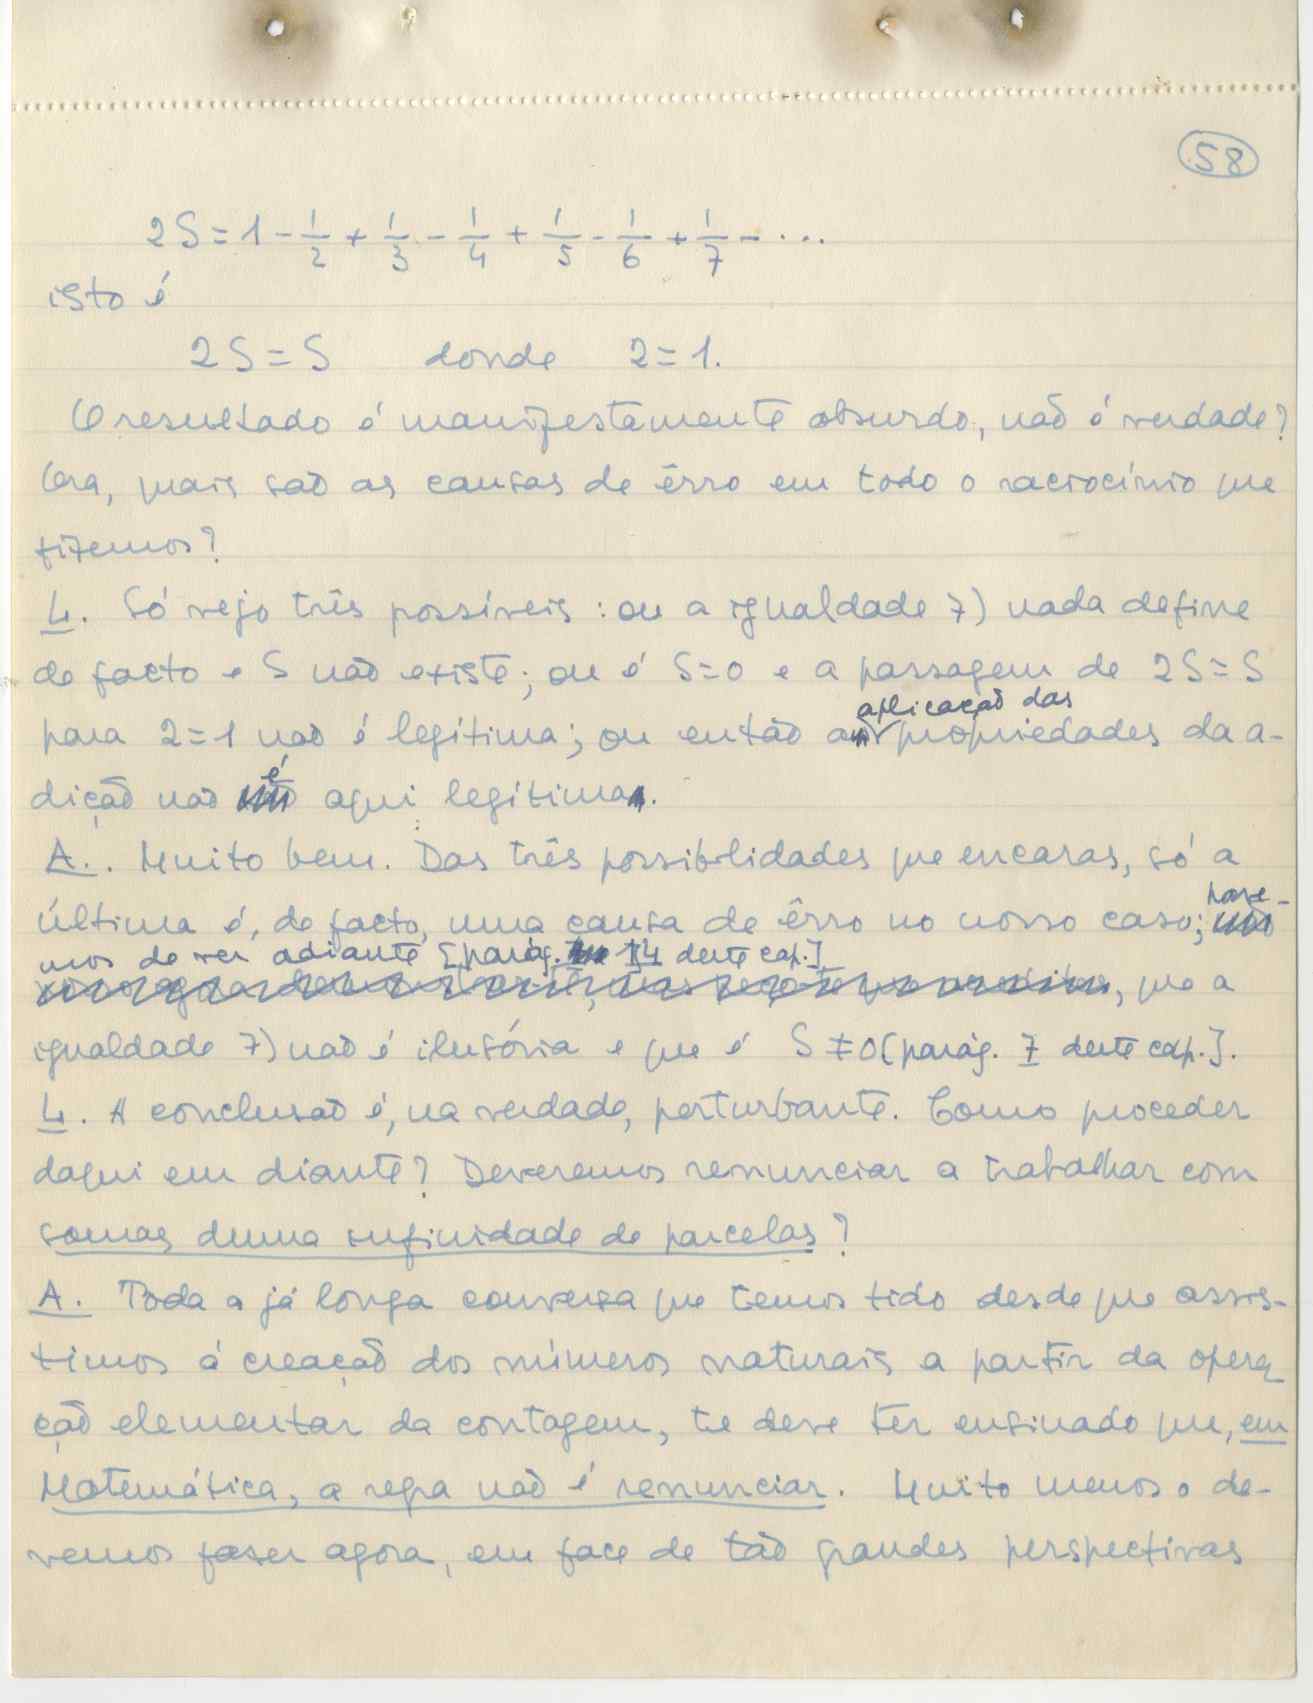 58
2S = 1 - 1/2 + 1/3 - 1/4 + 1/5 - 1/6 + 1/7 - ...
isto é
2S = S donde 2 = 1.
O resultado é manifestamente absurdo, não é verdade?
Ora, quais são as causas de êrro em todo o raciocínio que
fizemos?
L. Só vejo três possíveis: ou a igualdade 7) nada define
de facto e S não existe; ou é S=0 e a passagem de 2S=S
aplicação das
para 2=1 não é legítima; ou então a propriedades da a-
é
dição não aqui legítima.
A. Muito bem. Das três possibilidades que encaras, só a
have-
última é, de facto, uma causa de êrro no nosso caso;
mos de ver adiante [parág. 14 deste cap.]
, que a
igualdade 7) não é ilusória e que é S ≠ 0 [parág. 7 deste cap.].
L. A conclusão é, na verdade, perturbante. Como proceder
daqui em diante? Deveremos renunciar a trabalhar com
somas duma infinidade de parcelas?
A. Toda a já longa conversa que temos tido desde que assis-
timos á creação dos números naturais a partir da opera
ção elementar da contagem, te deve ter ensinado que, em
Matemática, a regra não é renunciar. Muito menos o de-
vemos fazer agora, em face de tão grandes perspectivas